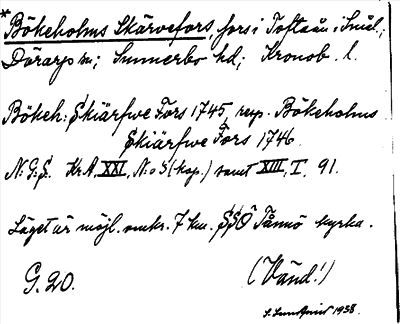 * Bökeholms Skärvefors, fors i Toftaån i Smål.;
Dörarp sn; Sunnerbo hd; Kronob. l.
Bökeh: Skiärfwe Fors 1745, resp. Bökeholms
Skiärfwe Fors 1746.
N: G: S. Kr A, XXI, N:o 5 (kop.) samt XIII, I, 91.
Läget är möjl. omkr. 7 km. SSÖ Tånnö kyrka.
G. 20. (Vänd!)
1938.